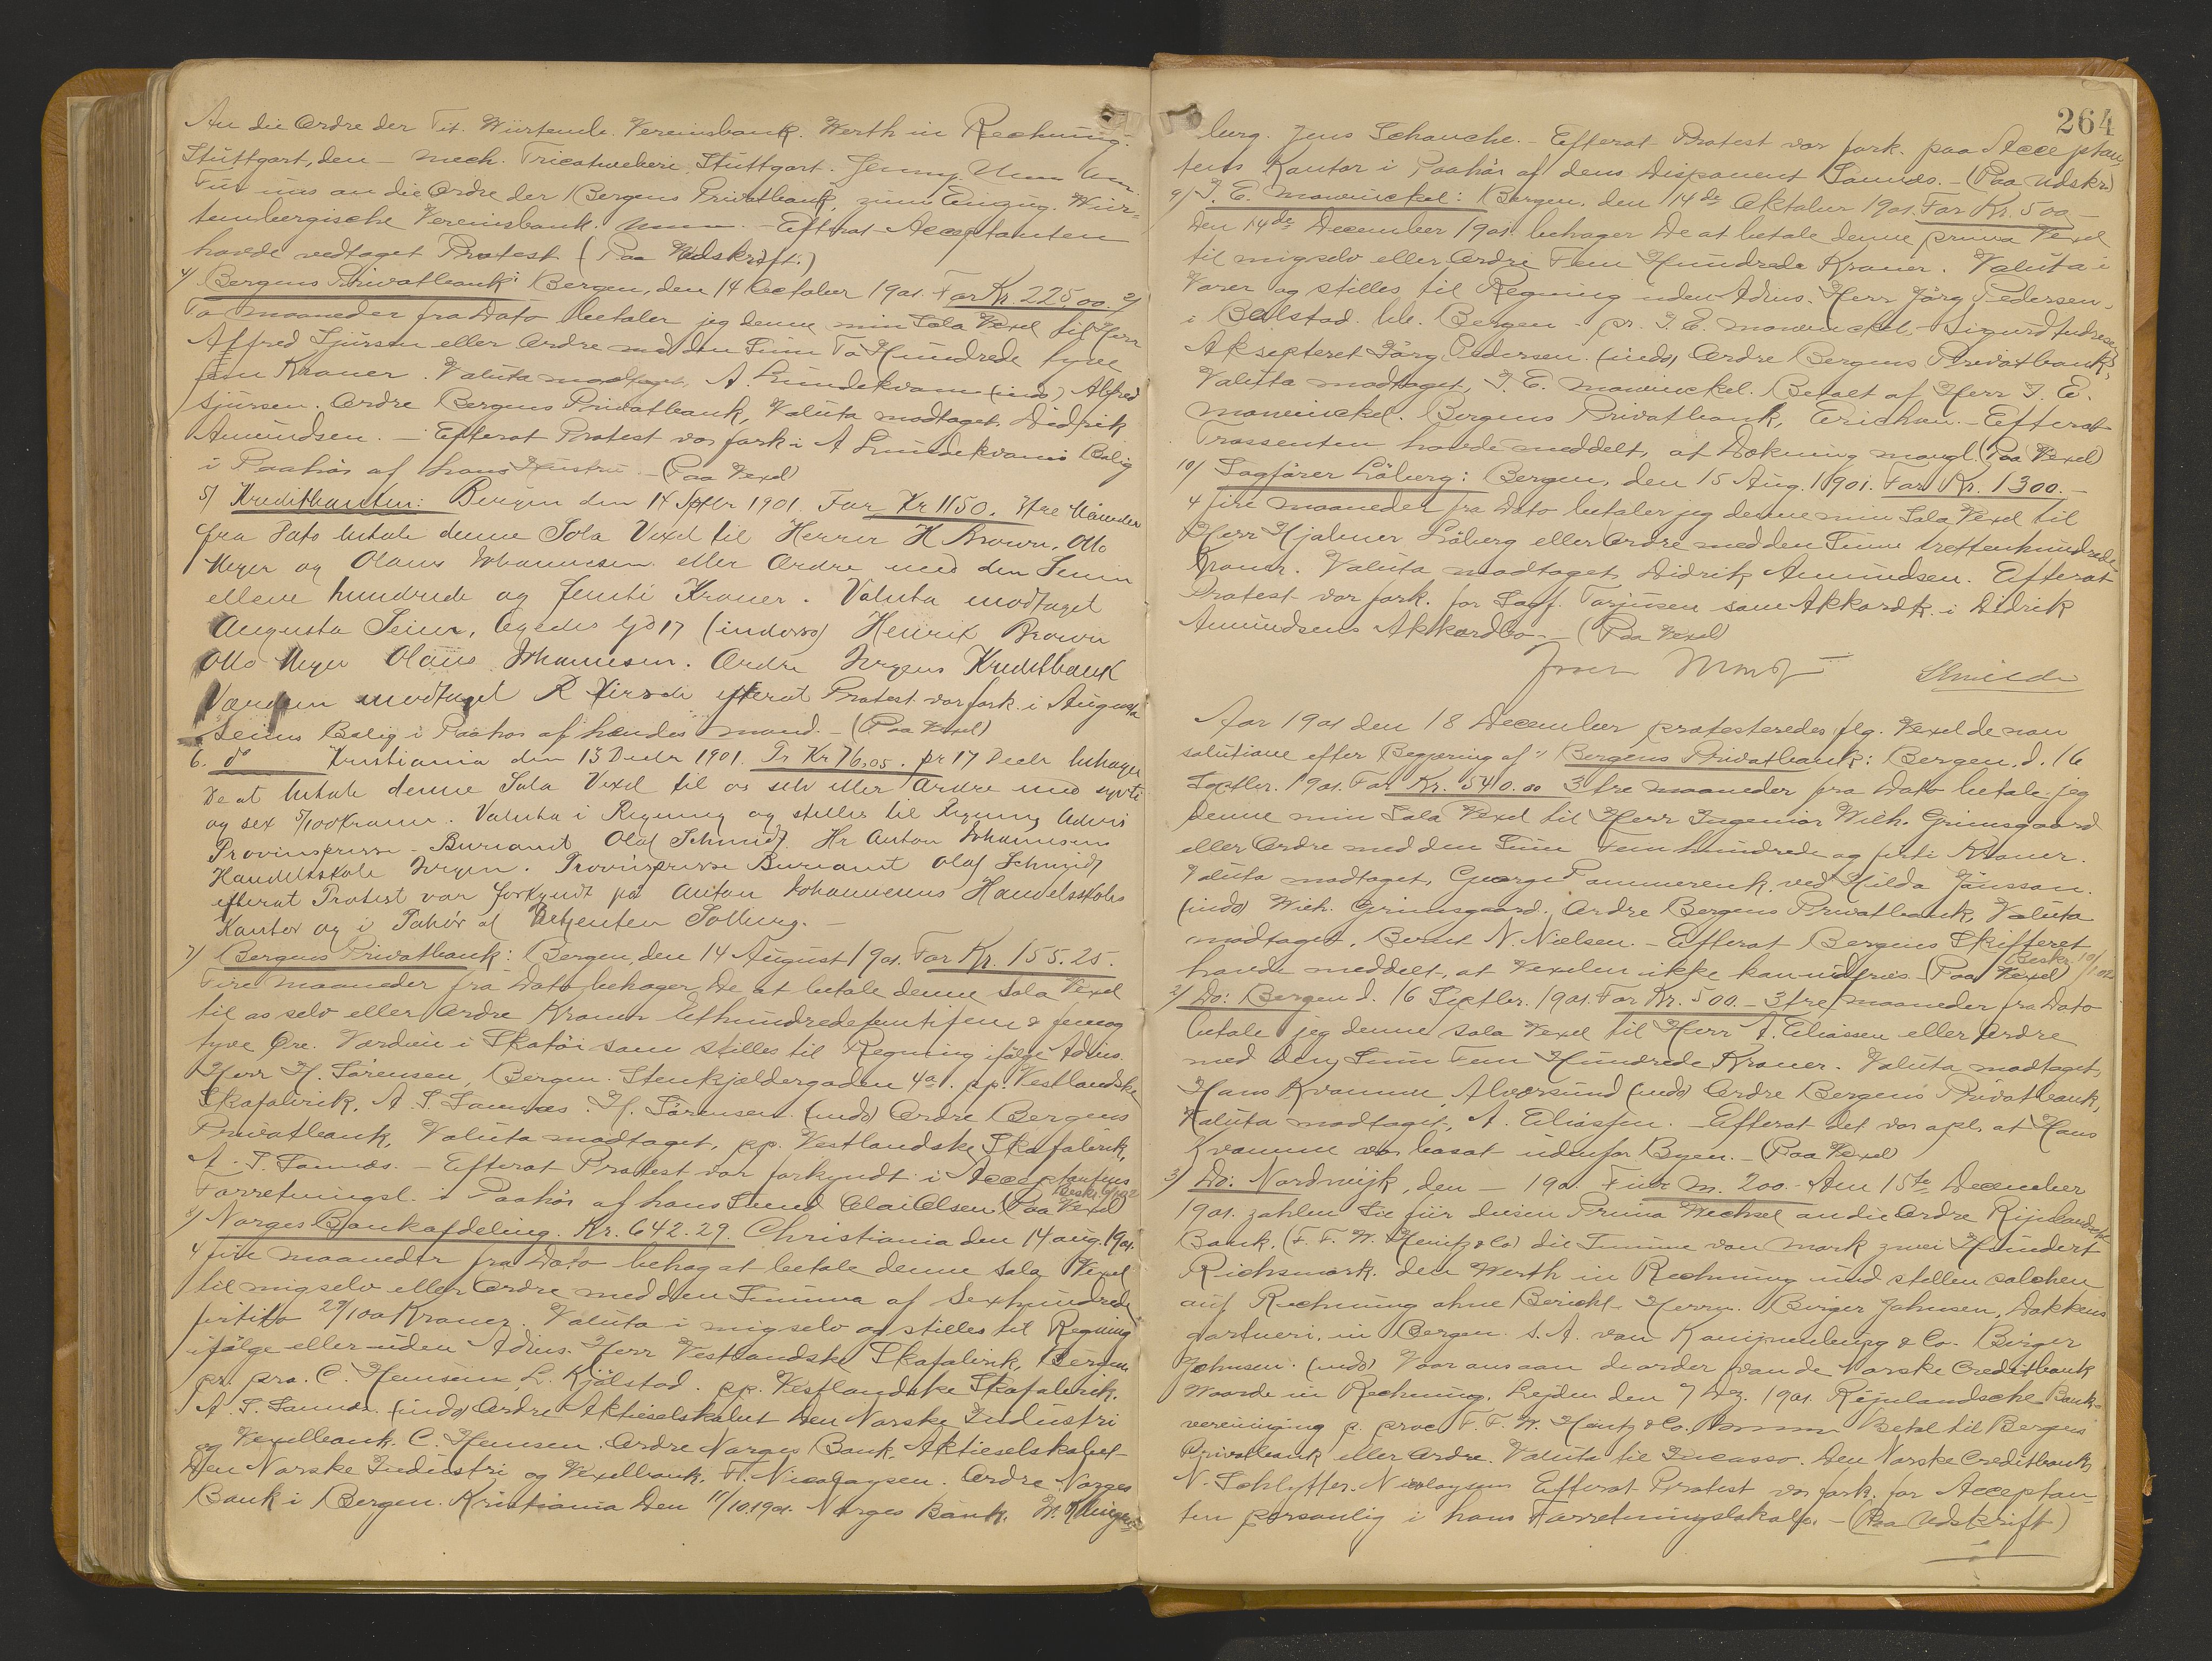 An die Ordre der Tit. Würtemb. Vereinsbank. Werth in Rechnung.
Stuttgart, den – mech. Tricotweberei Stuttgart.
Für uns an die Ordre der Bergens Privatbank, zum Einzug. Wür-
tembergische Vereinsbank. – Efterat Acceptanten
havde vedtaget Protest (Paa Udskrift.)
4/ Bergens Privatbank: Bergen, den 14 October 1901. For Kr. 225,00. 2/
To maaneder fra Dato betaler jeg denne min Sola Vexel til Herr
Alfred Sjursen eller Ordre med den Sum To Hundrede tyve
fem Kroner. Valuta modtaget, A. Lundekvam (indo) Alfred
Sjursen. Ordre Bergens Privatbank, Valuta modtaget, Didrik
Amundsen. – Efterat Protest var fork. i A Lundekvams Bolig
i Paahør af hans Hustru. – (Paa Vexel)
5/ Kreditbanken: Bergen den 14 Septbr 1901. For Kr 1150. 3tre Maaneder
fra Dato betale denne Sola Vexel til Herrer H Brown, Otto
Meyer og Olaus Johannesen eller Ordre med den Sum
elleve hundrede og femti Kroner. Valuta modtaget
Augusta Seim, (indosso) Henrik Brown
Otto Meyer Olaus Johannesen. Ordre Bergens Kreditbank
Værdien modtaget R efterat Protest var fork. i Augusta
Seims Bolig i Paahør af hendes mand. – (Paa Vexel)
6. do Kristiania den 13 Decbr 1901. Pr Kr 76,05. pr 17 Decbr behager
De at betale denne Sola Vexel til os selv eller Ordre med sytti
og sex 5/100 Kroner. Valuta i Regning og stilles til Regning Advis
Provinspresse-Bureauet Olaf Schmidt. Hr Anton Johannesens
Handelsskole Bergen. Provinspresse Bureauet Olaf Schmidt
efterat Protest var forkyndt på Anton Johannesens Handelsskoles
Kontor og i Påhør af Betjenten Solberg. –
7/ Bergens Privatbank: Bergen, den 14 August 1901. For Kr. 155.25.
Fire maaneder fra Dato behager De at betale denne Sola Vexel
til os selv eller Ordre Kroner Ethundredefemtifem & fem og
tyve Øre. Værdien i Skotøi som stilles til Regning ifølge Advis.
Herr H. Sørensen, Bergen. Stenkjældergaden 4a. pp. Vestlandske
Skofabrik, A. S. Samnøs. H. Sørensen. (indo) Ordre Bergens
Privatbank, Valuta modtaget, pp. Vestlandske Skofabrik,
A. S. Samnøs. – Efterat Protest var forkyndt i Acceptantens
Forretningsl. i Paahør af hans Svend Olai Olsen. (Paa Vexel)
8/ Norges Bankafdeling. Kr. 642.29. Christiania den 14 aug. 1901.
4 fire maaneder fra Dato behag at betale denne Sola Vexel
til mig selv eller Ordre med den Summa af Sexhundrede
førtito 29/100 Kroner. Valuta i mig selv og stilles til Regning
ifølge eller uden Advis. Herr Vestlandske Skofabrik, Bergen
pr. pra. C. Hemsen, L. Kjølstad. pp. Vestlandske Skofabrik.
A. S. Samnøs. (indo) Ordre Aktieselskabet Den Norske Industri
og Vexelbank. C. Hemsen. Ordre Norges Bank. Aktieselskabet
Den Norske Industri og Vexelbank. Fr. Nicolaysen. Ordre Norges
Bank i Bergen. Kristiania Den 11/10.1901. Norges Bank.
264
berg. Jens Schanche. – Efterat Protest var fork. paa Acceptan-
tens Kontor i Paahør af dens Disponent Samnøs. – (Paa Udskr.)
9/ J. E. Mowinckel: Bergen, den 14de Oktober 1901. For Kr. 500 –
Den 14de December 1901. behager De at betale denne prima Vexel
til mig selv eller Ordre Fem Hundrede Kroner. Valuta i
Varer og stilles til Regning uden Advis. Herr Jörg Pedersen,
i Balstad. bb. Bergen – pr. J. E. Mowinckel – Sigurd Andresen
Aksepteret Jörg Pedersen. (indo) Ordre Bergens Privatbank,
Valuta modtaget, J. E. Mowinckel. Betalt af Herr J. E.
Mowinckel. Bergens Privatbank, Erichsen. – Efterat
Trassenten havde meddelt, at Dækning mangl. (Paa Vexel)
10/ Sagfører Løberg: Bergen, den 15 Aug. 1901. For Kr. 1300. –
4 fire maaneder fra Dato betaler jeg denne min Sola Vexel til
Herr Hjalmer Løberg eller Ordre med den Sum trettenhundrede
Kroner. Valuta modtaget, Didrik Amundsen. Efterat
Protest var fork. for Sagf. Torjusen som Akkordk. i Didrik
Amundsens Akkordbo. – (Paa Vexel)
Aar 1901 den 18 December protesteredes flg. Vexel de non
solutione efter Begjæring af 1/ Bergens Privatbank: Bergen, d. 16
Septbr. 1901. For Kr. 540.00 3 tre maaneder fra Dato betale jeg
denne min Sola Vexel til Herr Ingeniør Wilh. Grimsgaard
eller Ordre med den Sum Fem hundrede og førti Kroner.
Valuta modtaget, George Pommerenk, ved Hilda Jönsson.
(indo) Wilh. Grimsgaard. Ordre Bergens Privatbank, Valuta
modtaget, Bernt N. Nielsen. – Efterat Bergens Skifteret
havde meddelt, at Vexelen ikke kan indfries. (Paa Vexel)
2/ Do: Bergen d. 16 Septbr. 1901. For Kr. 500. – 3 tre maaneder fra Dato
betale jeg denne Sola Vexel til Herr A. Eliassen eller Ordre
med den Sum Fem Hundrede Kroner. Valuta modtaget,
Hans Kvamme, Alversund (indo) Ordre Bergens Privatbank,
Valuta modtaget, A. Eliassen. – Efterat det var opl. at Hans
Kvamme var bosat udenfor Byen. – (Paa Vexel)
3/ Do: Nordwijk, den – 190. Für M. 200. – Am 15te December
1901. zahlen Sie für diesen Prima Wechsel an die Ordre Rijnlandsche
Bank. (F. F. W. Heintz & Co) die Summe von Mark zwei Hundert
Richsmark. den Werth in Rechnung und stellen solchen
auf Rechnung ohne Bericht. Herrn. Birger Johnsen, Dokkens
gartneri, in Bergen. S. A. van Konijnenburg & Co. Birger
Johnsen. (indo) Voor ons aan de order van de Norske Creditbank
Waarde in Rechnung. Leyden den 7 Dez. 1901. Rijnlandsche Bank-
vereeniging p. proc F. F. W. Heintz & Co. Betal til Bergens
Privatbank eller Ordre. Valuta til Incasso. Den Norske Creditbank
N. Schlytter. Nicolaysen Efterat Protest var fork. for Acceptan-
ten personlig i hans Forretningslokale. – (Paa Udskrift)